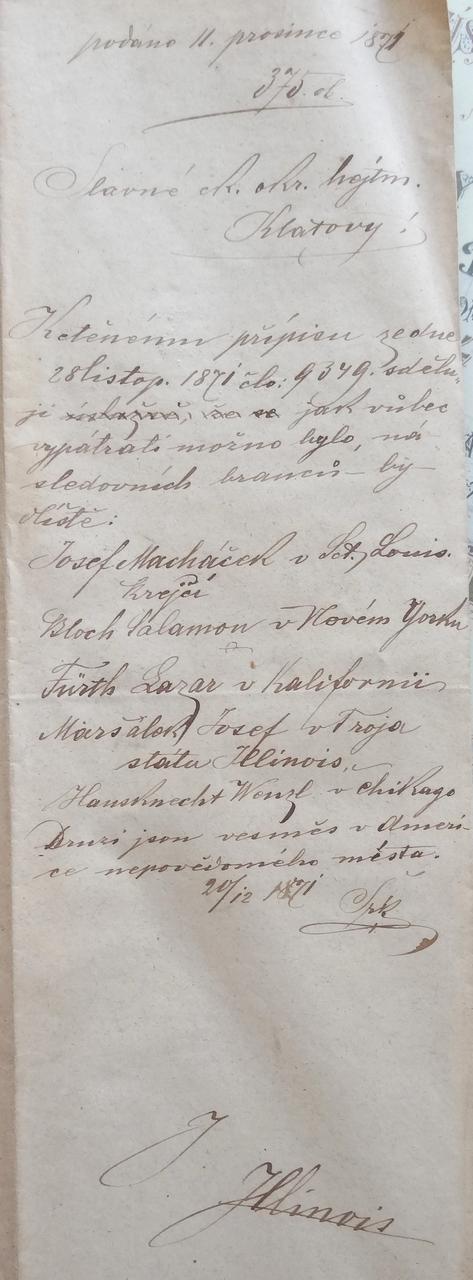 podáno 11. prosince 1871
375. ob.
Slavné ck. okr. hejtm.
Klatovy!
Ktěnému přípisu ze dne
28 listop. 1871 člo: 9349. sdělu-
ji jak vůbec
vypátrati možno bylo, ná-
sledovních branců by-
dliště:
Josef Macháček v Sct. Louis.
krejčí
Bloch Salamon v Novém Yorku
Fürth Lazar v Kalifornii
Maršálek Josef v Troja
státu Illinois,
Hausknecht Wenzl v Chikago
Druzí jsou vesměs v Ameri-
ce nepovědomého města.
20/12 1871
J
Illinois